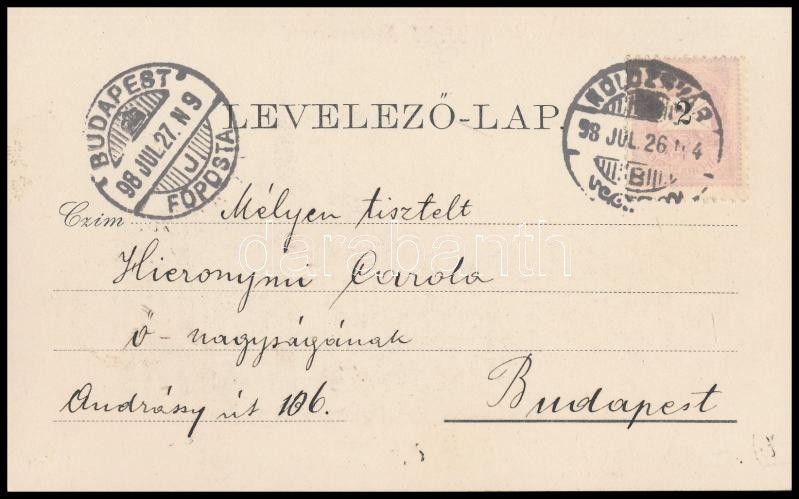 BUDAPEST
98 JUL. 27. N 9
J
FŐPOSTA
LEVELEZŐ-LAP.
KOLOZSVÁR
98 JUL. 26. N 4
2
Czim Mélyen tisztelt
darabanth
Hieronymi Carola
ő-nagyságának
Andrássy út 106.
Budapest